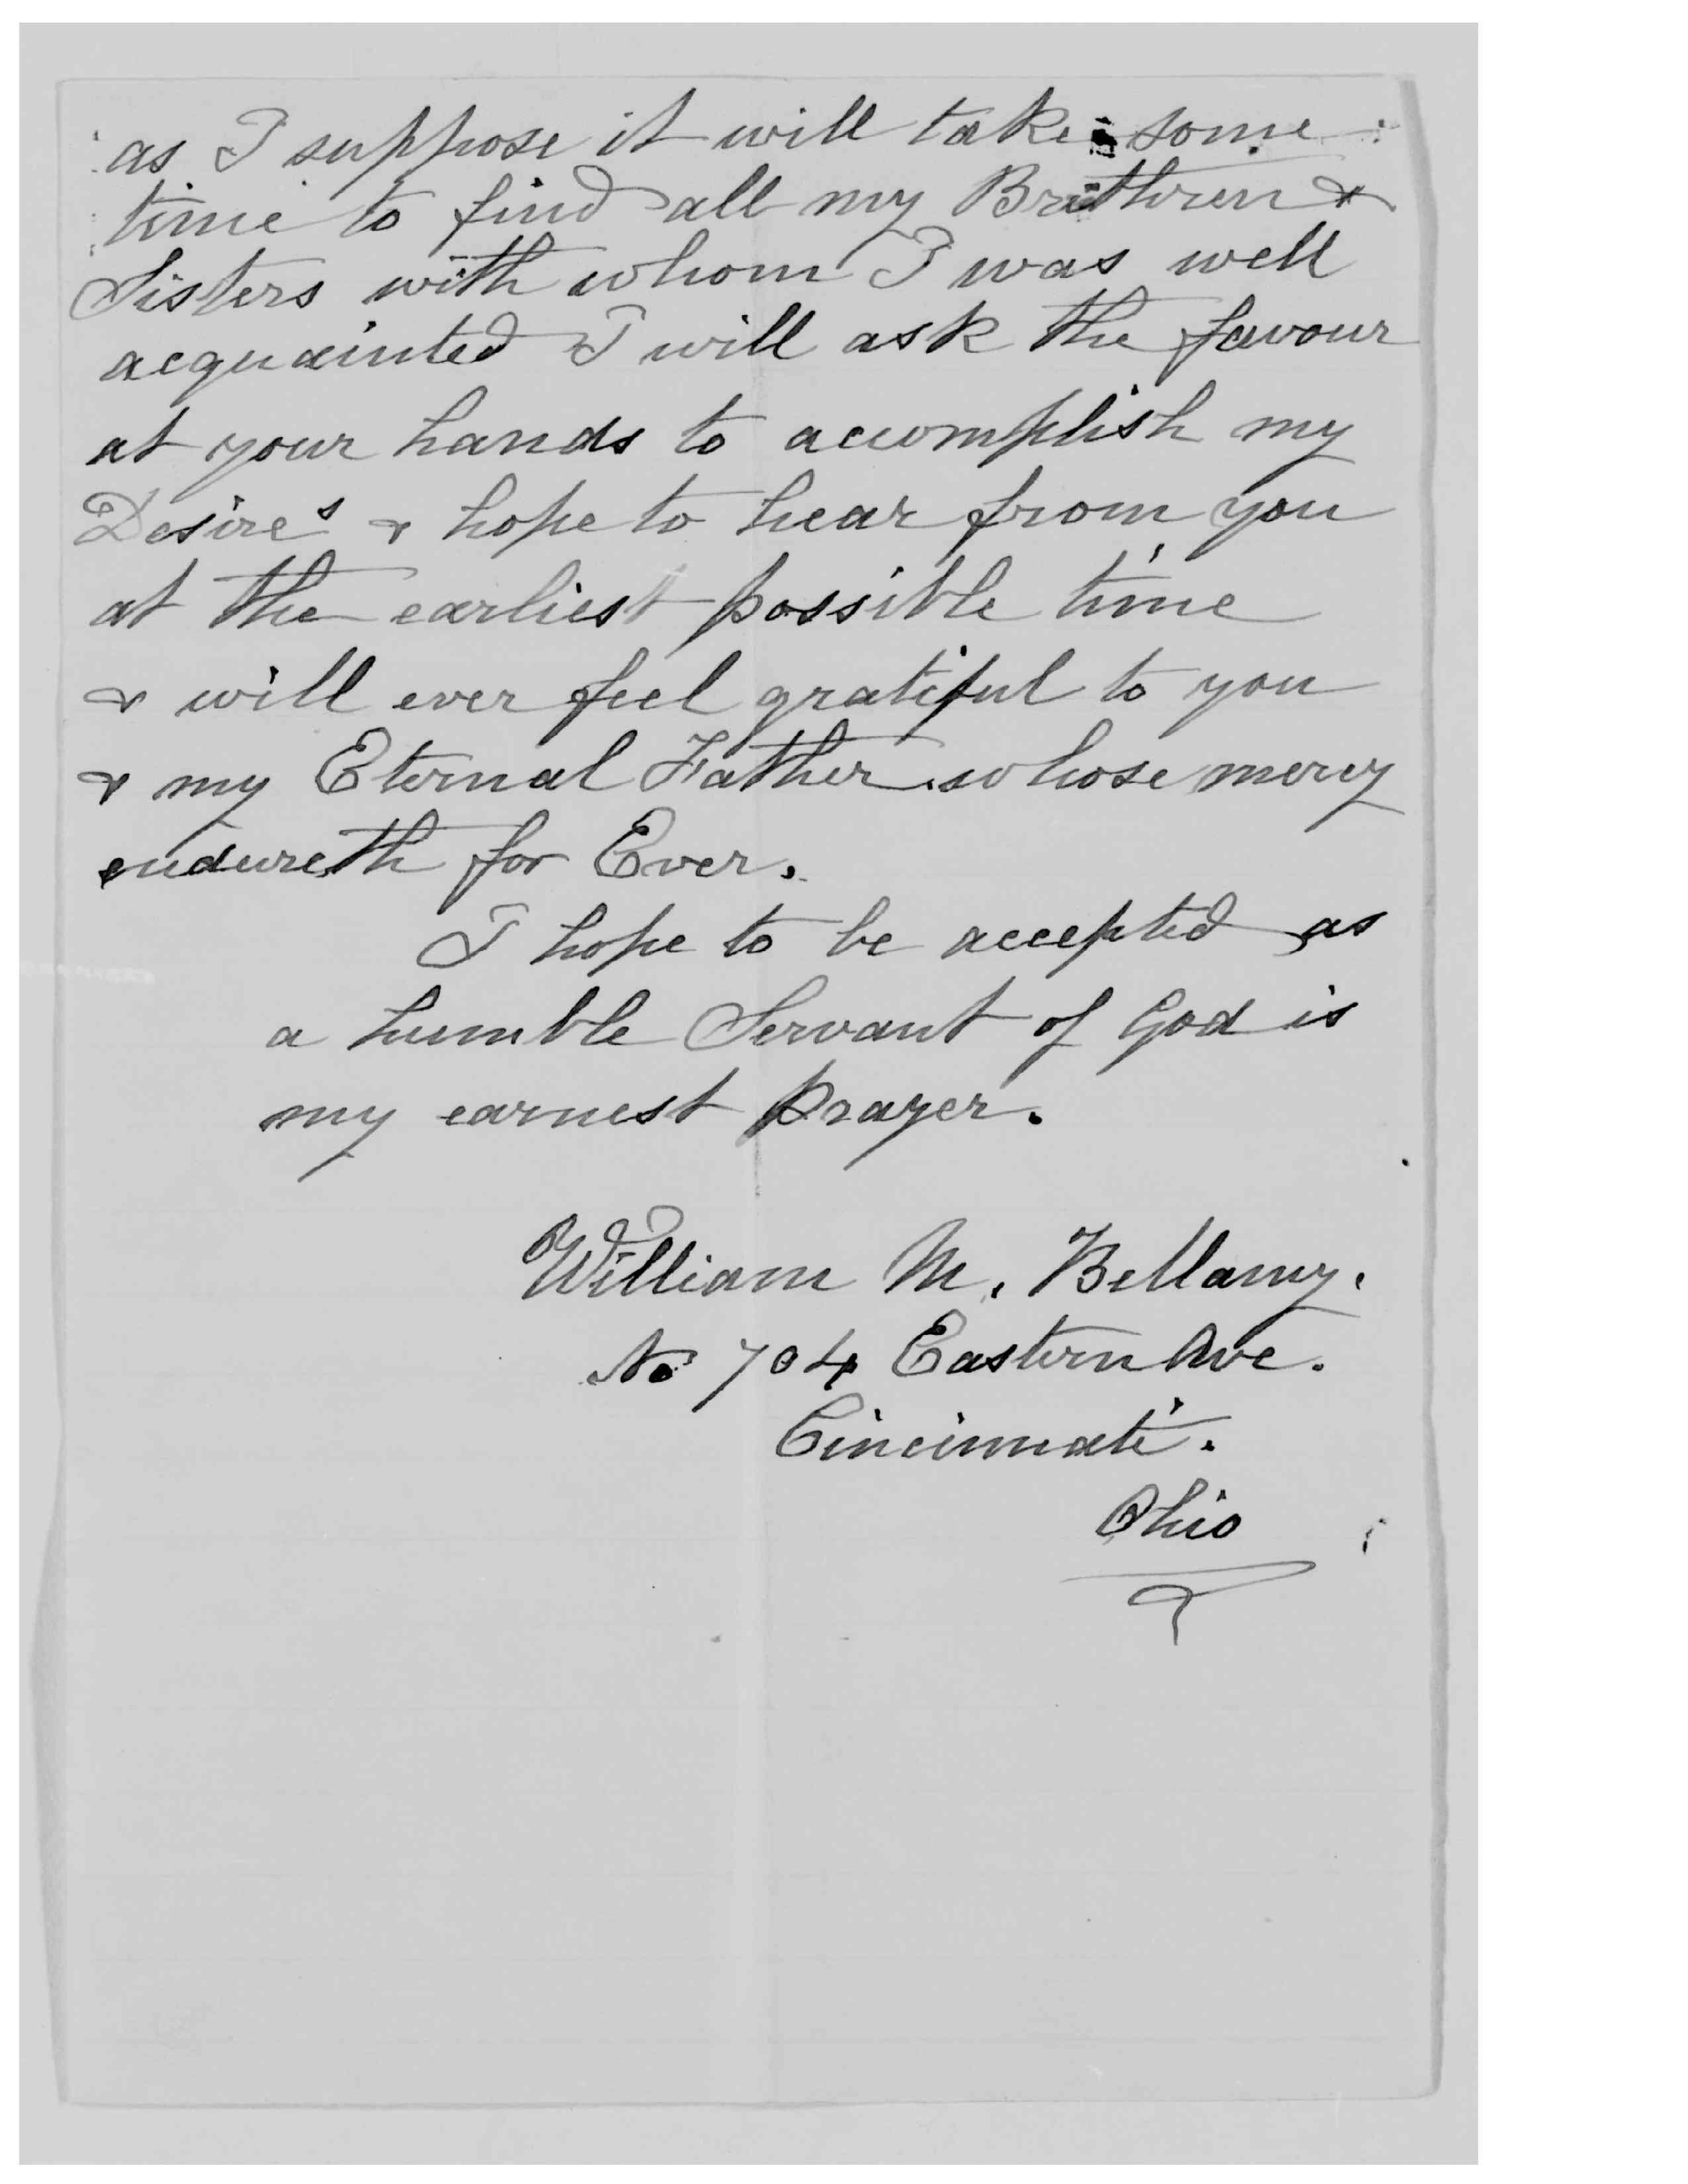 as I suppose it will take some
time to find all my Brethren &
Sisters with whom I was well
acquainted I will ask the favour
at your hands to accomplish my
Desires & hope to hear from you
at the earliest possible time
& will ever feel grateful to you
& my Eternal Father whose mercy
endureth for Ever.
I hope to be accepted as
a humble Servant of God is
my earnest prayer.
William M. Bellamy.
No 704 Eastern Ave.
Cincinnati.
Ohio